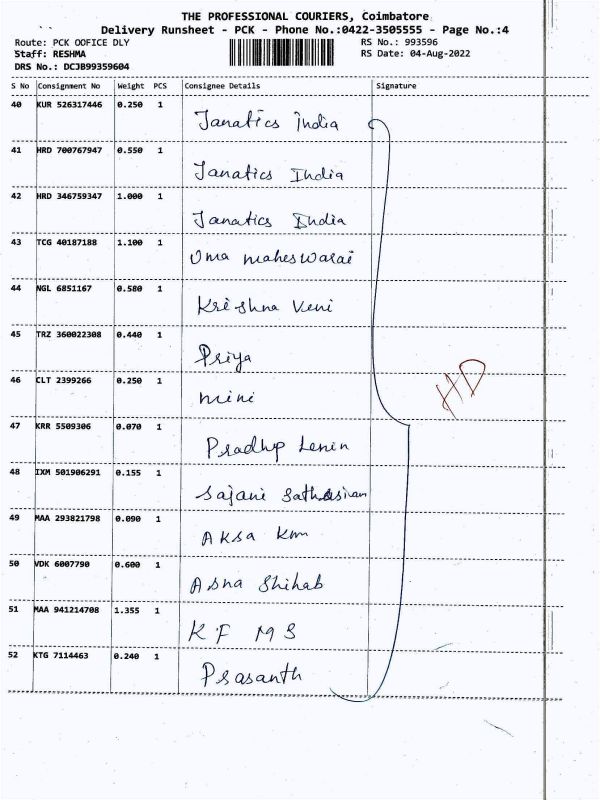 THE PROFESSIONAL COURIERS, Coimbatore
Delivery Runsheet - PCK - Phone No.:0422-3505555 - Page No.:4
Route: PCK OOFICE DLY RS No.: 993596
Staff: RESHMA RS Date: 04-Aug-2022
DRS No.: DCJB99359604
S No Consignment No Weight PCS Consignee Details Signature
40 KUR 526317446 0.250 1 Janatics India
41 HRD 700767947 0.550 1 Janatics India
42 HRD 346759347 1.000 1 Janatics India
43 TCG 40187188 1.100 1 Uma maheswarai
44 NGL 6851167 0.580 1 Krishna Veni
45 TRZ 360022308 0.440 1 Priya
46 CLT 2399266 0.250 1 mini
HD
47 KRR 5509306 0.070 1 Pradhp Lenin
48 IXM 501906291 0.155 1 Sajani
49 MAA 293821798 0.090 1 Aksa Km
50 VDK 6007790 0.600 1 Asna Shihab
51 MAA 941214708 1.355 1 K F M S
52 KTG 7114463 0.240 1 Prasanth